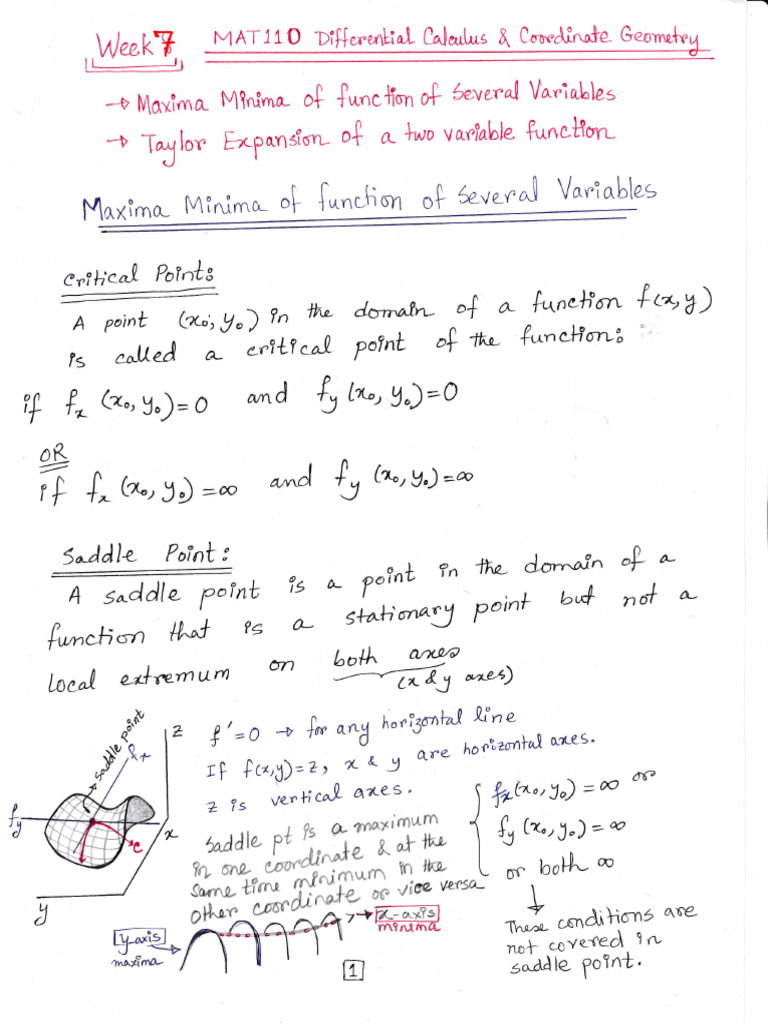 Week 7 MAT110 Differential Calculus & Coordinate Geometry
→ Maxima Minima of function of Several Variables
→ Taylor Expansion of a two variable function
Maxima Minima of function of Several Variables
Critical Point:
A point (x₀, y₀) in the domain of a function f(x,y)
is called a critical point of the function:
if fₓ (x₀, y₀) = 0 and f_y (x₀, y₀) = 0
OR
if fₓ (x₀, y₀) = ∞ and f_y (x₀, y₀) = ∞
Saddle Point:
A saddle point is a point in the domain of a
function that is a stationary point but not a
local extremum on both axes
(x & y axes)
saddle point
fₓ
z
f_y
x
c
y
f' = 0 → for any horizontal line
If f(x,y) = z, x & y are horizontal axes.
z is vertical axes.
Saddle pt is a maximum
in one coordinate & at the
same time minimum in the
other coordinate or vice versa
fₓ(x₀, y₀) = ∞ or
f_y (x₀, y₀) = ∞
or both ∞
These conditions are
not covered in
saddle point.
y-axis
maxima
x-axis
minima
1